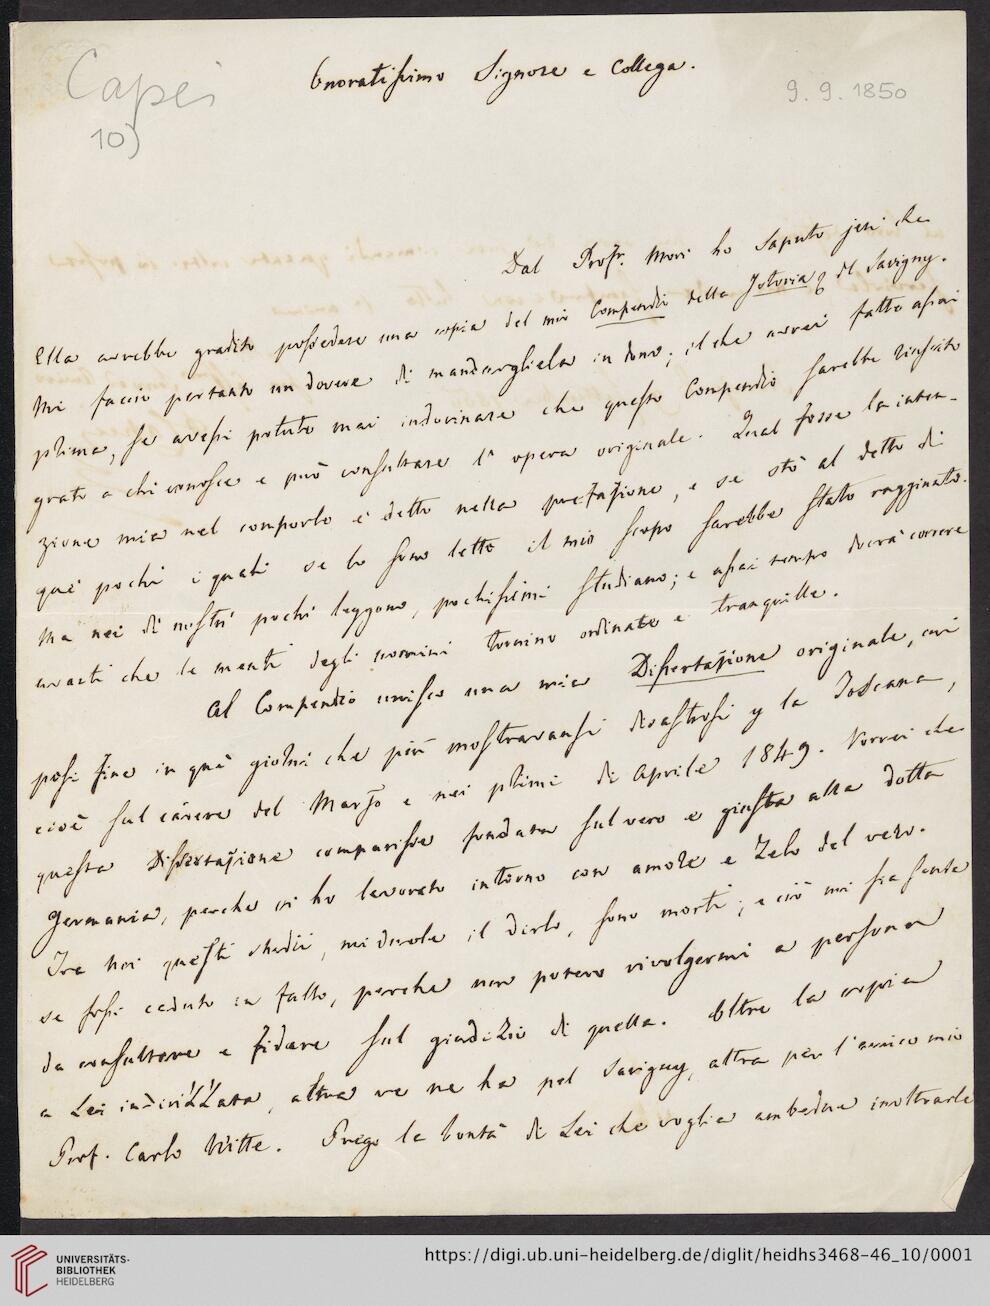 Capei
10)
Onoratissimo Signore e Collega.
9. 9. 1850
Dal Prof. Mori ho saputo jeri che
Ella avrebbe gradito possedere una copia del mio Compendio della Istoria del Savigny.
Mi faccio pertanto un dovere di mandargliela in dono; il che avrei fatto assai
prima, se avessi potuto mai indovinare che questo Compendio sarebbe riuscito
grato a chi conosce e può consultare l'opera originale. Qual fosse la inten-
zione mia nel comporlo è detto nella prefazione, e se stò al detto di
que' pochi i quali se lo sono letto il mio scopo sarebbe stato raggiunto.
Ma nei dì nostri pochi leggono, pochissimi studiano; e assai tempo dovrà correre
avanti che le menti degli uomini tornino ordinate e tranquille.
Al Compendio unisco una mia Dissertazione originale, cui
posi fine in que' giorni che più mostravansi disastrosi per la Toscana,
cioè sul cadere del Marzo e nei primi di Aprile 1849. Vorrei che
questa Dissertazione comparisse fondata sul vero e giusta alla dotta
Germania, perche vi ho lavorato intorno con amore e zelo del vero.
Tra noi questi studii, mi duole il dirlo, sono morti; e ciò mi sia scusa
se fossi caduto in fallo, perche non potevo rivolgermi a persona
da consultare e fidare sul giudizio di quella. Oltre la copia
a Lei indirizzata, altra ve ne ha pel Savigny, altra per l'amico mio
Prof. Carlo Witte. Prego la bontà di Lei che voglia ambedue inoltrarle
UNIVERSITÄTS-
BIBLIOTHEK
HEIDELBERG
https://digi.ub.uni-heidelberg.de/diglit/heidhs3468-46_10/0001